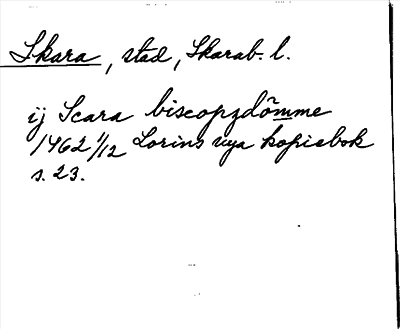 Skara, stad, Skarab. l.
ij Scara biscopzdõmme
1462 1/12 Lorins nya kopiebok
s. 23.